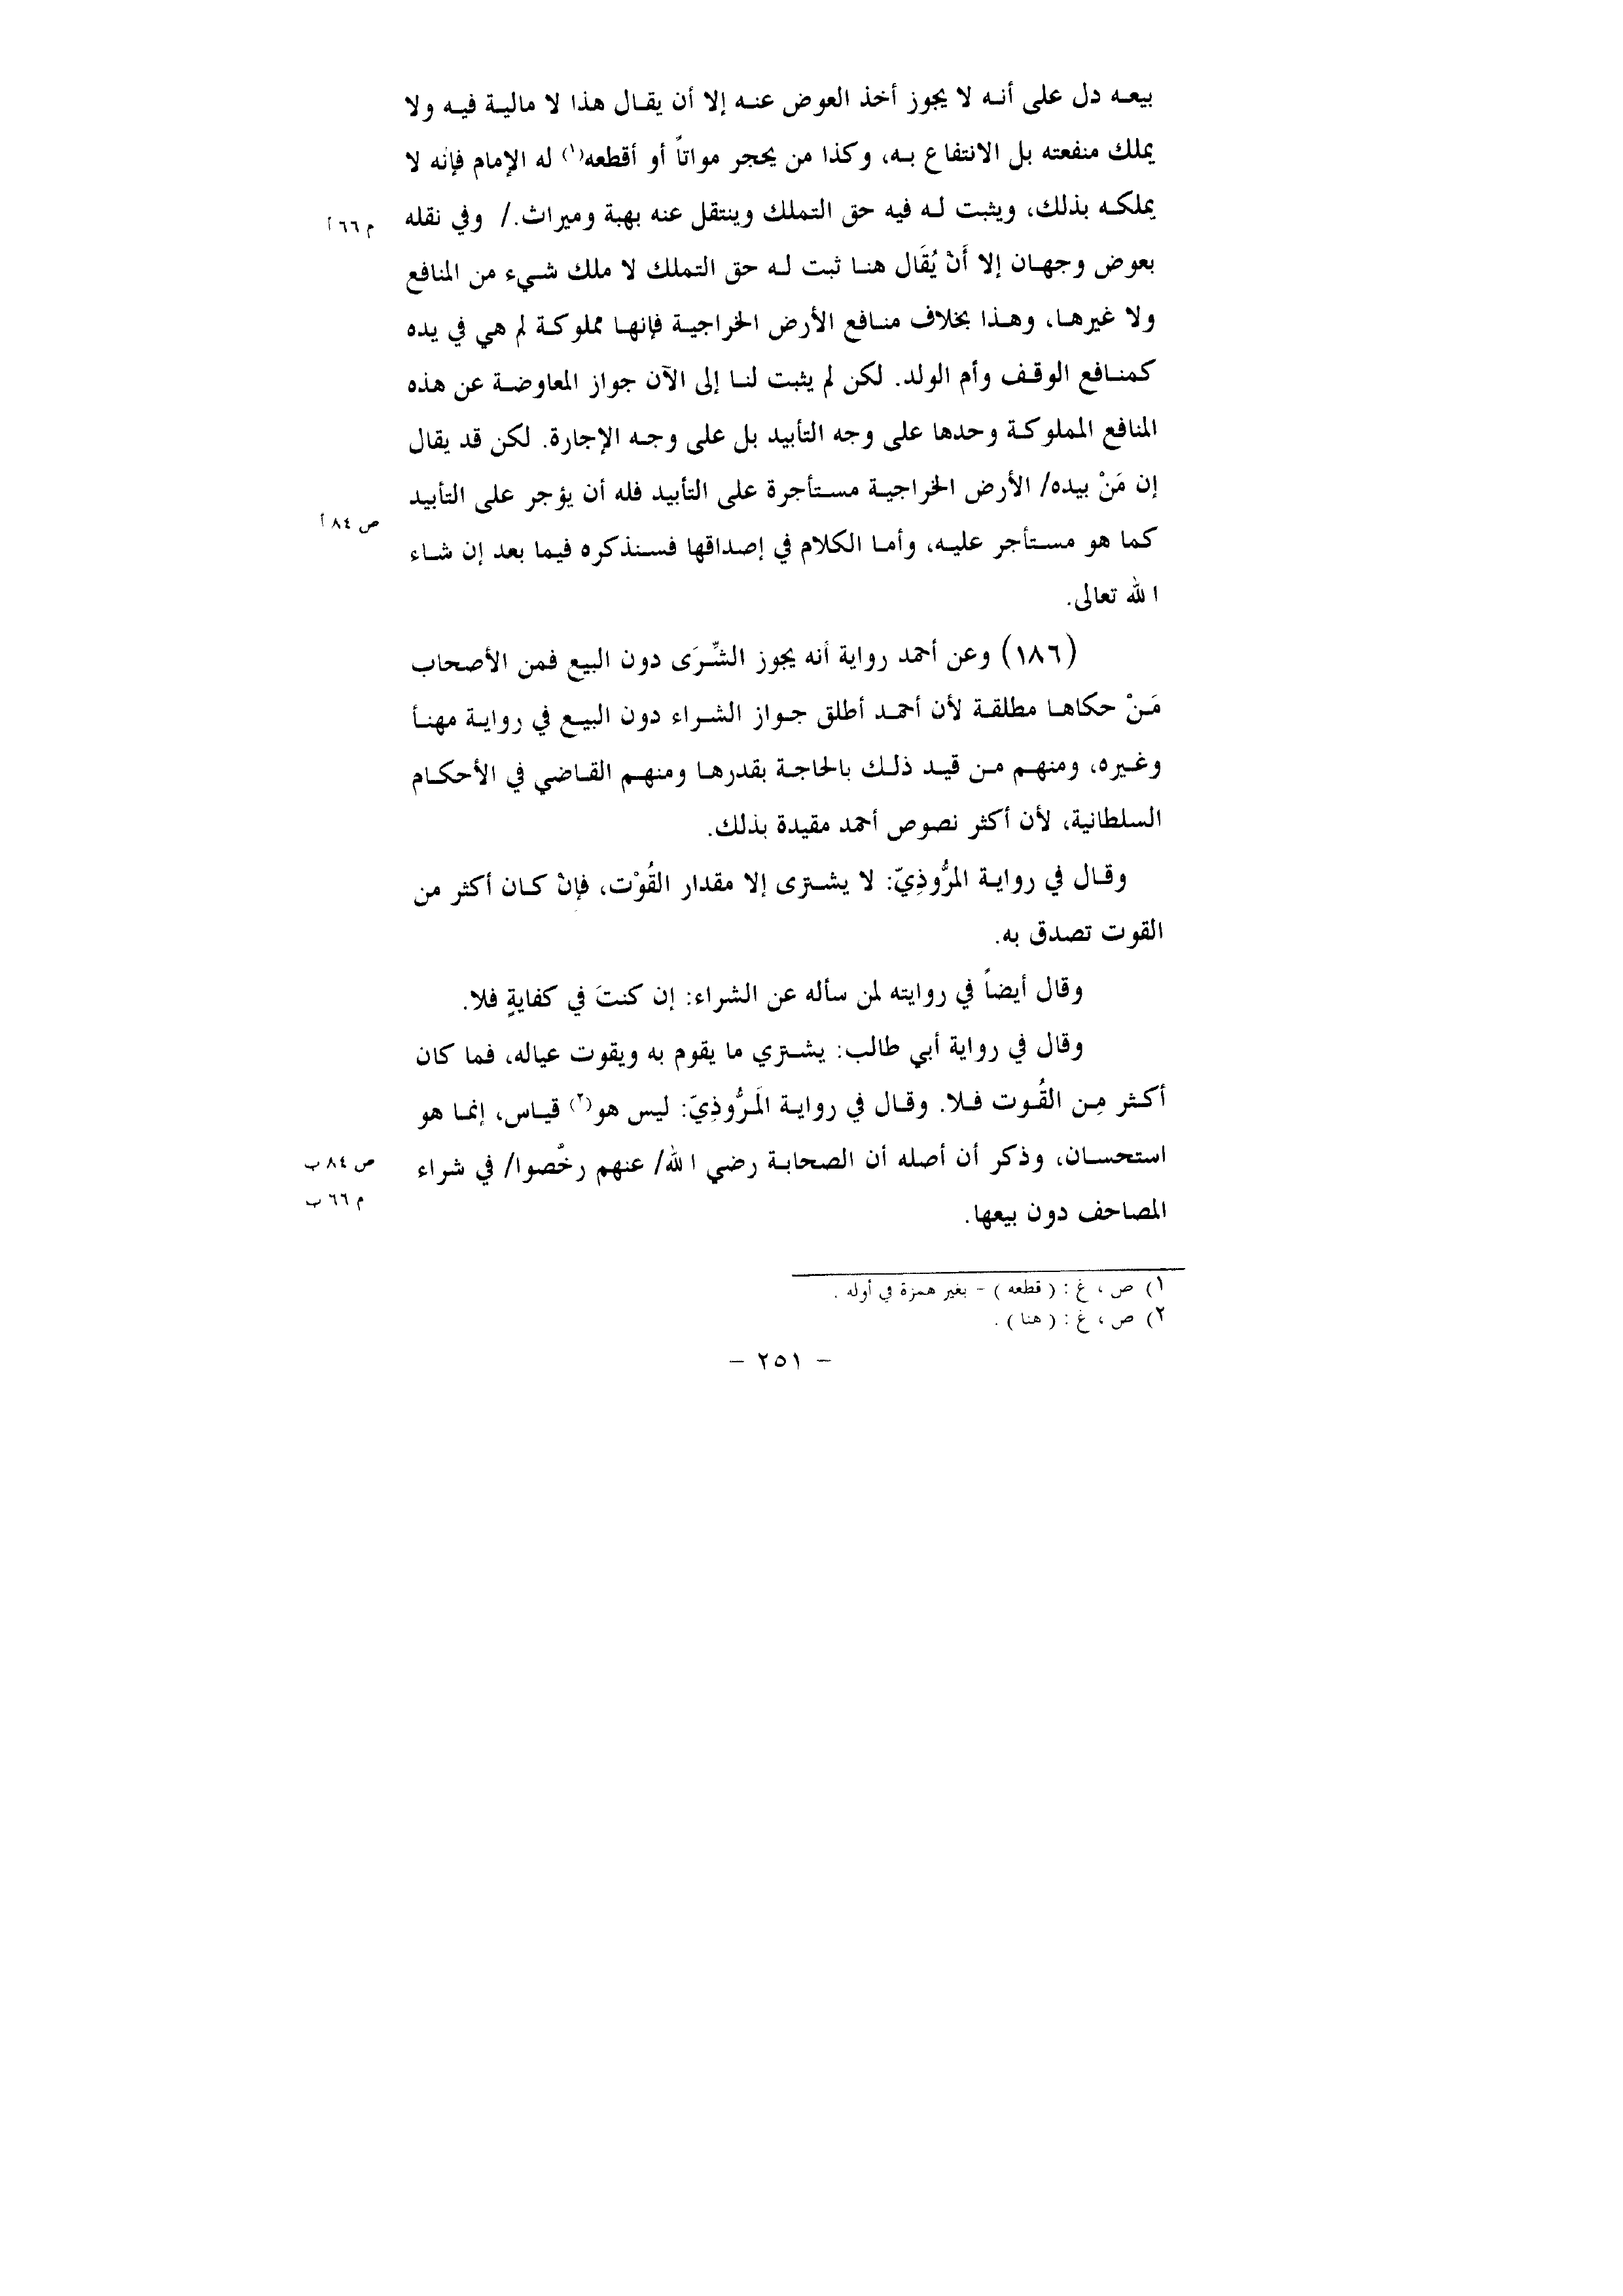 بيعه دل على أنه لا يجوز أخذ العوض عنه إلا أن يقال هذا لا مالية فيه ولا
يملك منفعته بل الانتفاع به، وكذا من يحجر مواتاً أو أقطعه(١) له الإمام فإنه لا
يملكه بذلك، ويثبت له فيه حق التملك وينتقل عنه بهبة وميراث./ وفي نقله
م ٦٦ أ
بعوض وجهان إلا أَنْ يُقَال هنا ثبت له حق التملك لا ملك شيء من المنافع
ولا غيرها، وهذا بخلاف منافع الأرض الخراجية فإنها مملوكة لم هي في يده
كمنافع الوقف وأم الولد. لكن لم يثبت لنا إلى الآن جواز المعاوضة عن هذه
المنافع المملوكة وحدها على وجه التأبيد بل على وجه الإجارة. لكن قد يقال
إن مَنْ بيده/ الأرض الخراجية مستأجرة على التأبيد فله أن يؤجر على التأبيد
ص ٨٤ أ
كما هو مستأجر عليه، وأما الكلام في إصداقها فسنذكره فيما بعد إن شاء
الله تعالى.
(١٨٦) وعن أحمد رواية أنه يجوز الشِّرَى دون البيع فمن الأصحاب
مَنْ حكاها مطلقة لأن أحمد أطلق جواز الشراء دون البيع في رواية مهنأ
وغيره، ومنهم من قيد ذلك بالحاجة بقدرها ومنهم القاضي في الأحكام
السلطانية، لأن أكثر نصوص أحمد مقيدة بذلك.
وقال في رواية المرُّوذِيّ: لا يشترى إلا مقدار القُوْت، فإنْ كان أكثر من
القوت تصدق به.
وقال أيضاً في روايته لمن سأله عن الشراء: إن كنتَ في كفايةٍ فلا.
وقال في رواية أبي طالب: يشتري ما يقوم به ويقوت عياله، فما كان
أكثر مِن القُوت فلا. وقال في رواية المَرُّوذِيّ: ليس هو(٢) قياس، إنما هو
استحسان، وذكر أن أصله أن الصحابة رضي الله/ عنهم رخَّصوا/ في شراء
ص ٨٤ ب
م ٦٦ ب
المصاحف دون بيعها.
١) ص ، غ : ( قطعه ) - بغير همزة في أوله .
٢) ص ، غ : ( هنا ) .
– ٢٥١ –